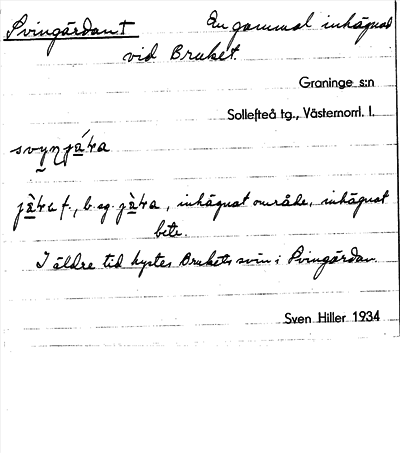 Svingårdan † En gammal inhägnad
vid Bruket.
Graninge s:n
Sollefteå tg., Västernorrl. l.
f., b. sg. , inhägnat område, inhägnat
bete.
I äldre tid hystes Brukets svin i Svingårdan.
Sven Hiller 1934